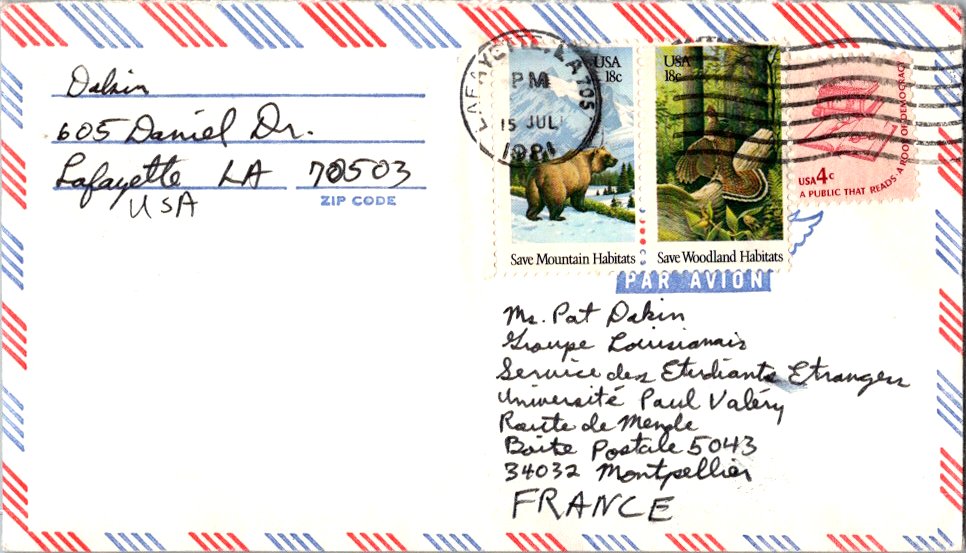 Dakin
605 Daniel Dr.
Lafayette LA 70503
USA
ZIP CODE
LAFAYETTE, LA 705
PM
15 JUL
1981
USA
18c
Save Mountain Habitats
USA
18c
Save Woodland Habitats
USA 4c
A PUBLIC THAT READS, A ROOT OF DEMOCRACY
PAR AVION
Ms. Pat Dakin
Groupe Louisianais
Service des Etudiants Etrangers
Université Paul Valéry
Route de Mende
Boite Postale 5043
34032 Montpellier
FRANCE